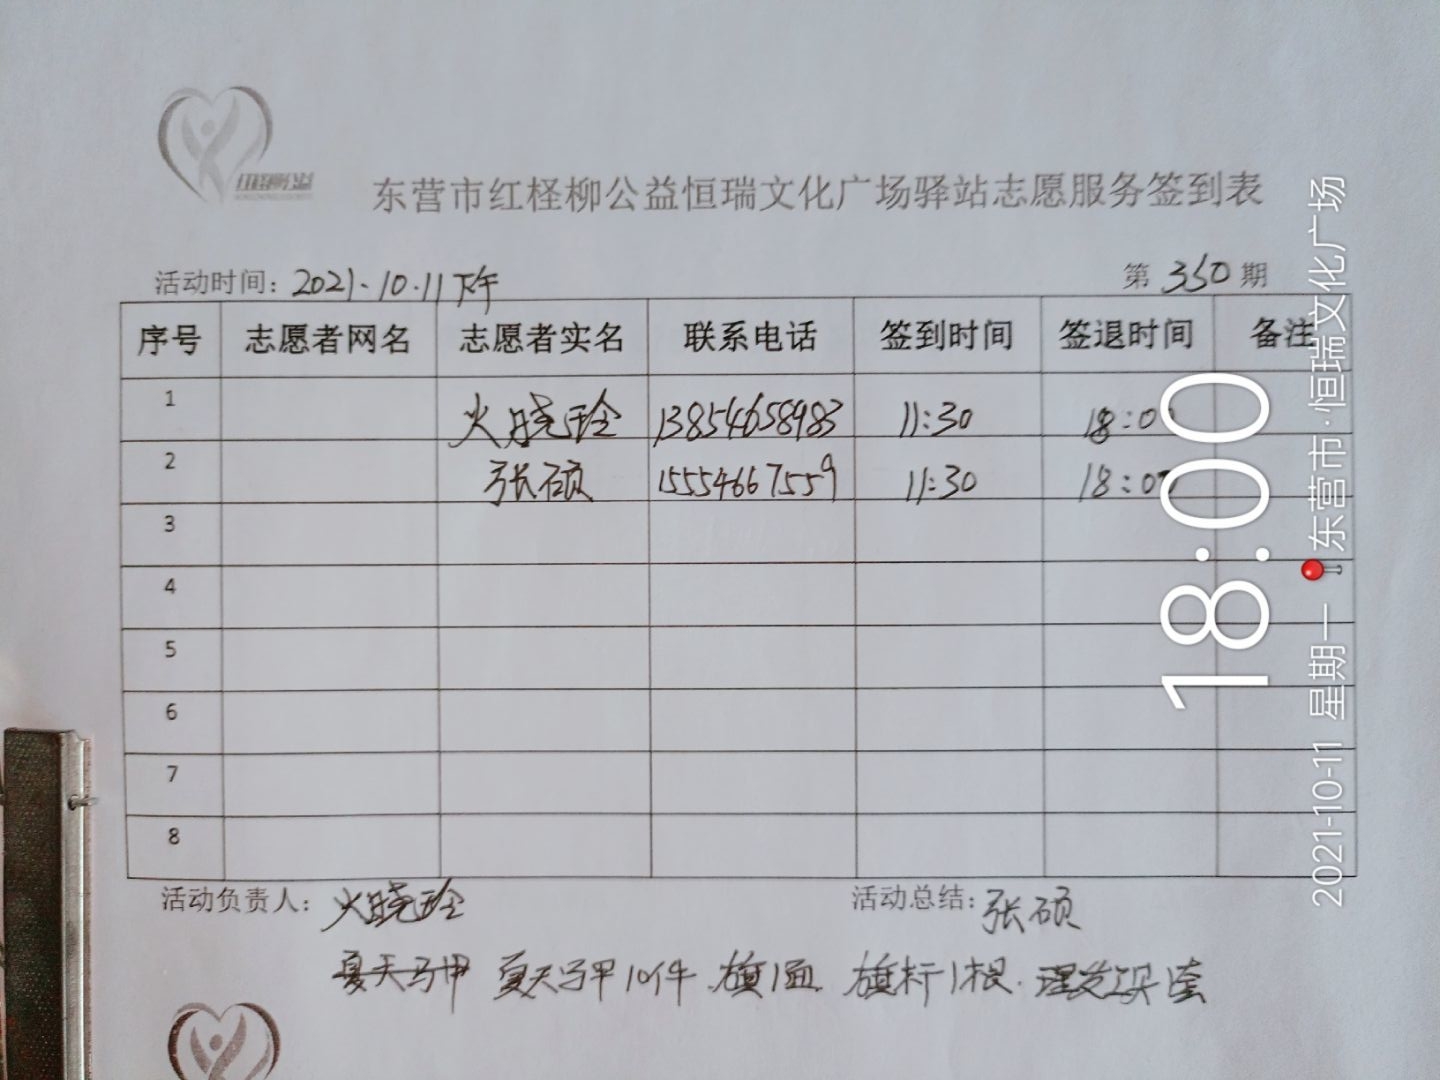 红柽柳公益
东营市红柽柳公益恒瑞文化广场驿站志愿服务签到表
活动时间：2021.10.11下午 第 350 期
序号 志愿者网名 志愿者实名 联系电话 签到时间 签退时间 备注
1 火晓玲 13854658983 11:30 18:00
2 张硕 15554667559 11:30 18:00
3
4
5
6
7
8
活动负责人：火晓玲 活动总结：张硕
夏天马甲 夏天马甲10件 旗1面 旗杆1根. 理发工具1套
18:00
2021-10-11 星期一 东营市·恒瑞文化广场